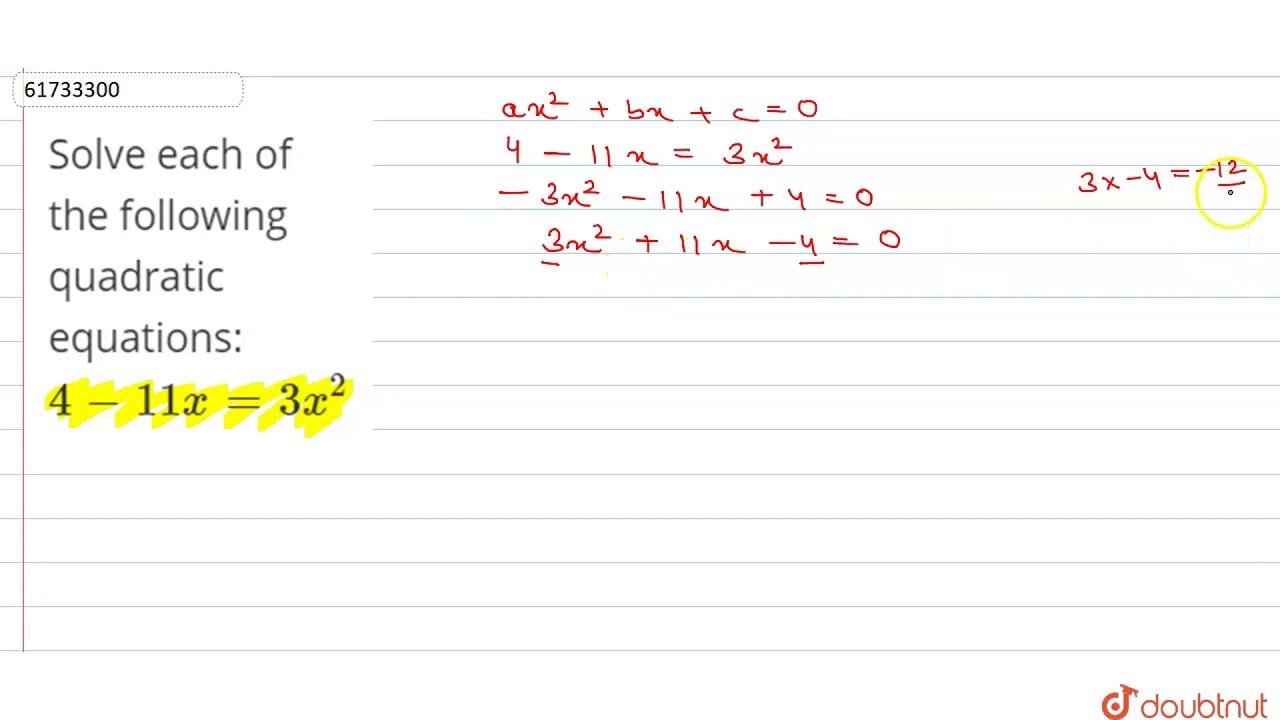 61733300
Solve each of
the following
quadratic
equations:
4 − 11x = 3x²
ax² + bx + c = 0
4 − 11x = 3x²
− 3x² − 11x + 4 = 0
3x² + 11x − 4 = 0
3 × −4 = −12
doubtnut